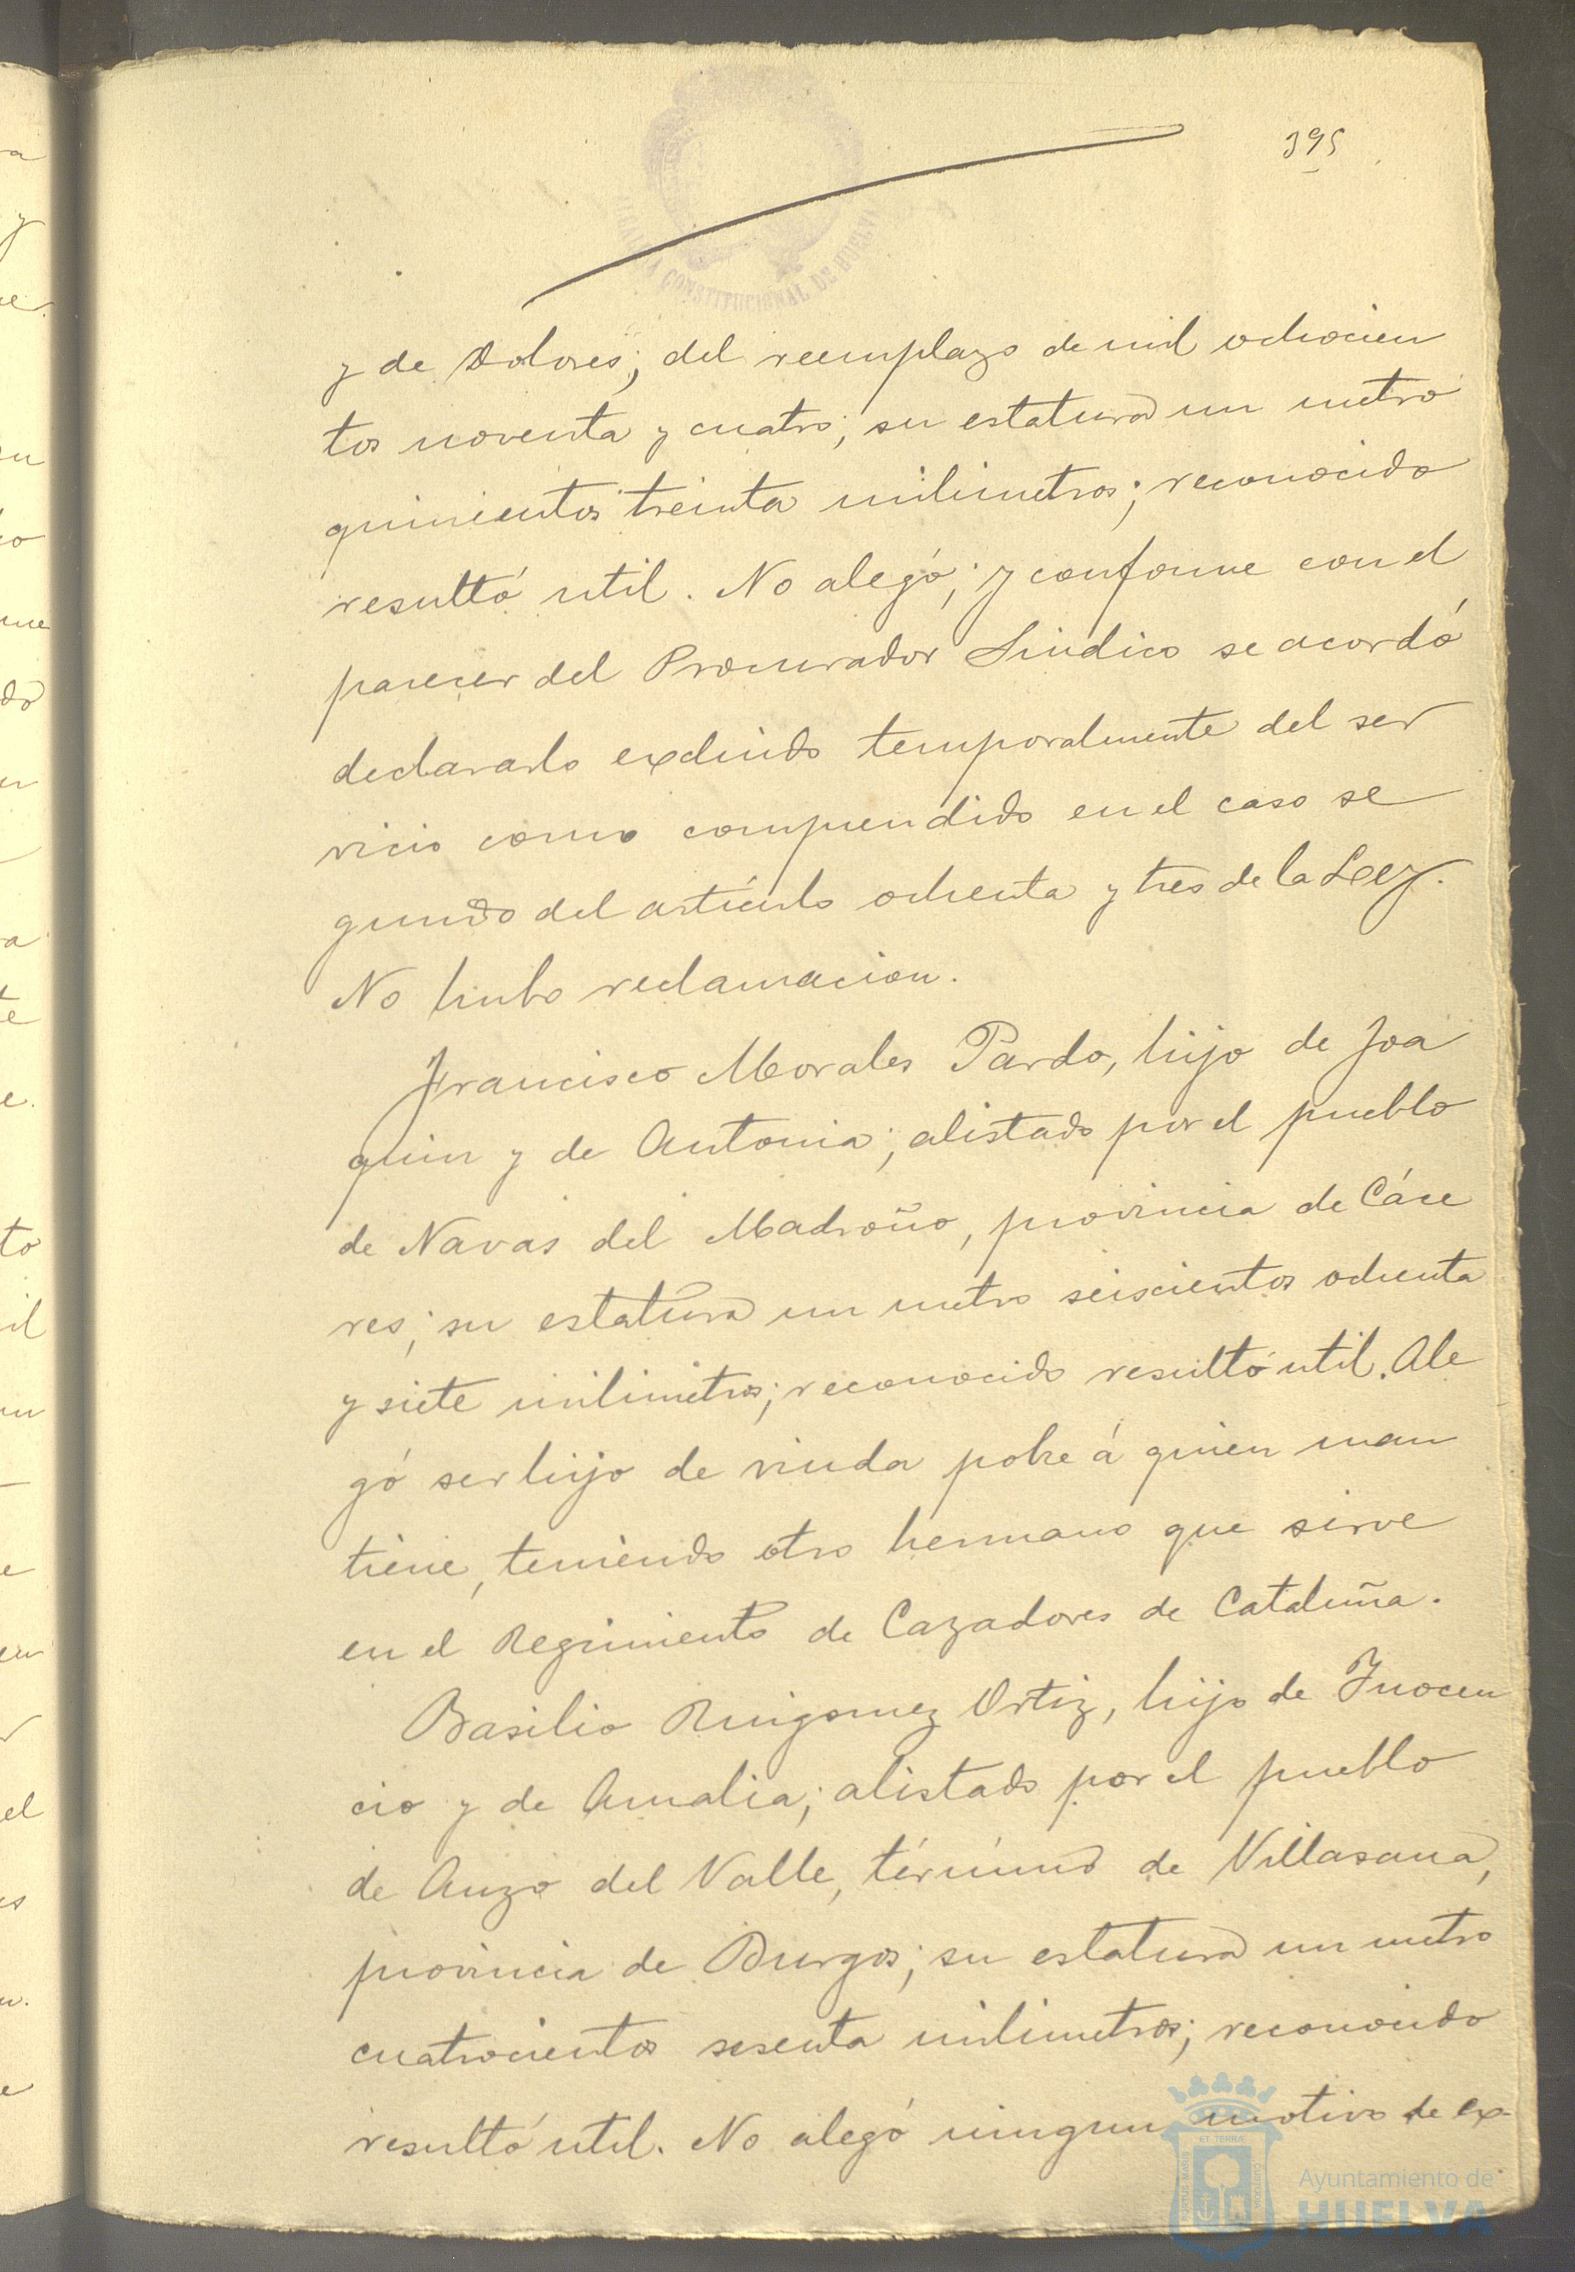 395
ALCALDIA CONSTITUCIONAL DE HUELVA
y de Dolores; del reemplazo de mil ochocien
tos noventa y cuatro; su estatura un metro
quinientos treinta milimetros; reconocido
resultó util. No alegó; y conforme con el
parecer del Procurador Sindico se acordó
declararlo excluido temporalmente del ser
vicio como comprendido en el caso se
gundo del artículo ochenta y tres de la Ley.
No hubo reclamacion.
Francisco Morales Pardo, hijo de Joa
quin y de Antonia; alistado por el pueblo
de Navas del Madroño, provincia de Cáce
res; su estatura un metro seiscientos ochenta
y siete milimetros; reconocido resultó util. Ale
gó ser hijo de viuda pobre á quien man
tiene, teniendo otro hermano que sirve
en el Regimiento de Cazadores de Cataluña.
Basilio Ruigomez Ortiz, hijo de Inocen
cio y de Amalia; alistado por el pueblo
de Anzo del Valle, término de Villasana,
provincia de Burgos; su estatura un metro
cuatrocientos sesenta milimetros; reconocido
resultó util. No alegó ningun motivo de ex-
Ayuntamiento de
HUELVA